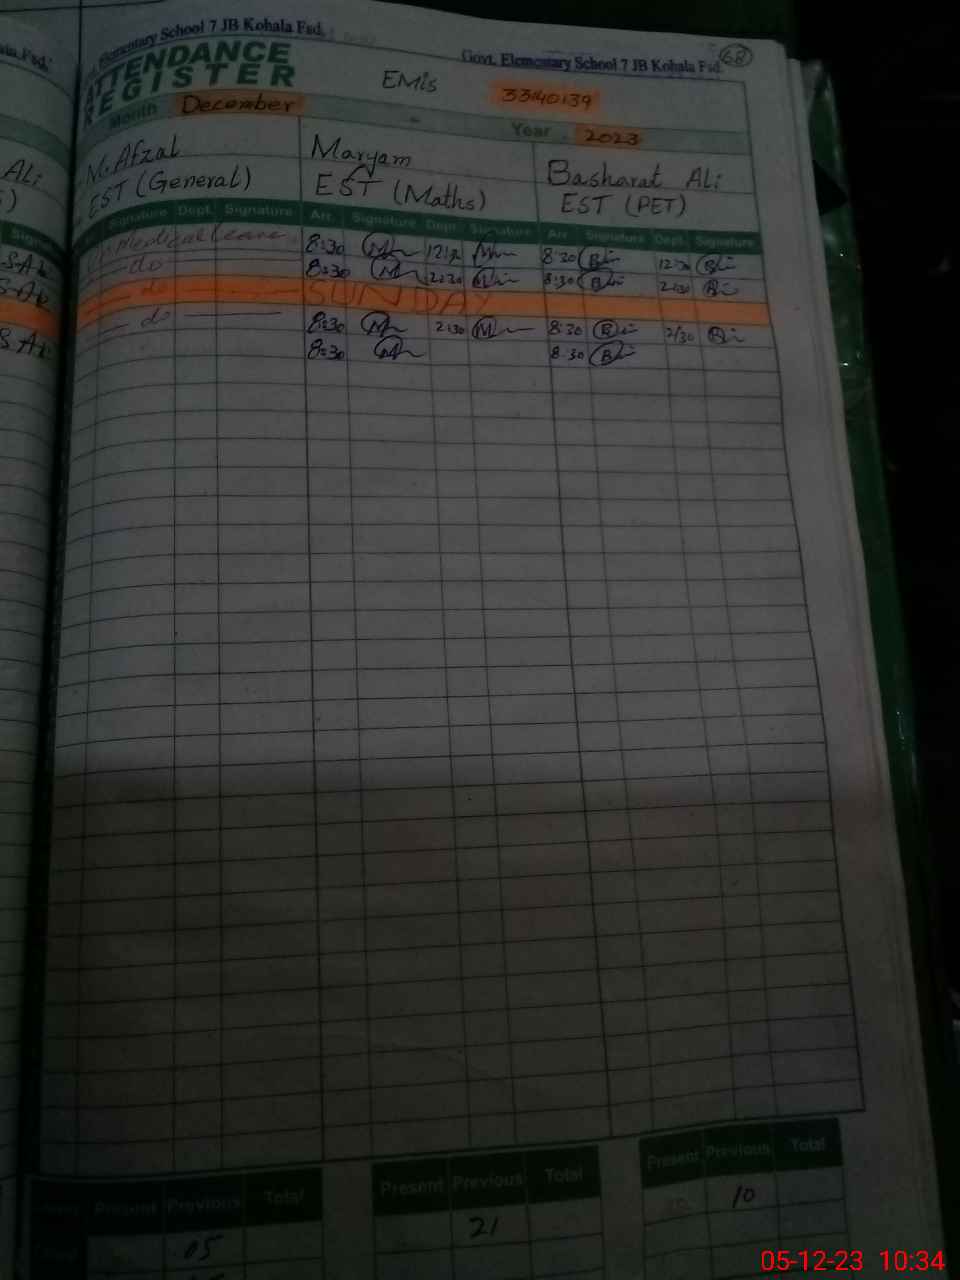 Elementary School 7 JB Kohala Fsd.
Govt. Elementary School 7 JB Kohala Fsd.
68
ATTENDANCE
REGISTER
EMis 33140139
Month December Year 2023
M. Afzal Maryam Basharat Ali
EST (General) EST (Maths) EST (PET)
Ali
Signature Dept. Signature Arr. Signature Dept. Signature Arr. Signature Dept. Signature
Medical Leave 8:30 8:30
do 8:30 8:30
do SUNDAY
do 8:30 2:30 8:30 2:30
8:30 8:30
Present Previous Total Present Previous Total Present Previous Total
05 21 10
05-12-23 10:34